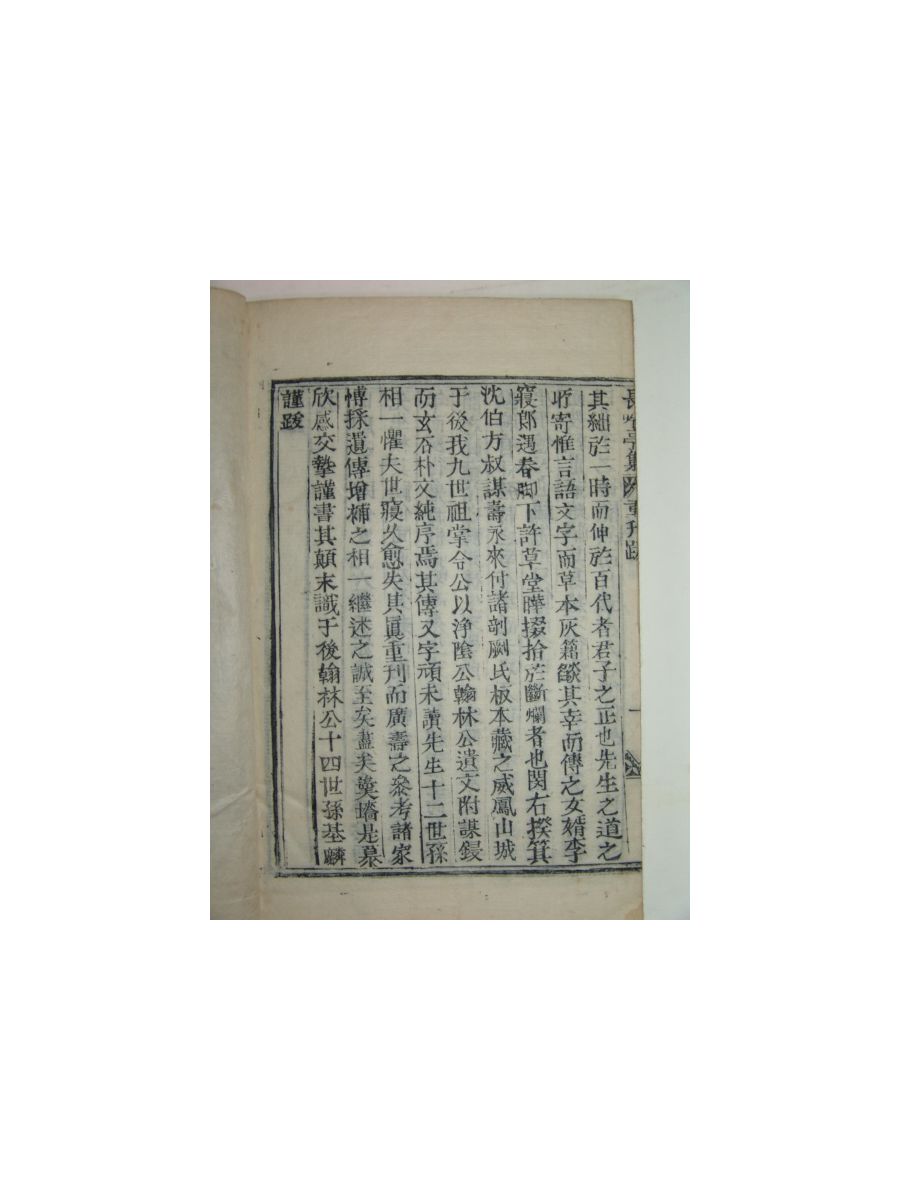 長吟亭集 重刊跋
其絀於一時而伸於百代者君子之正也先生之道之
所寄惟言語文字而草本灰篇燄其幸而傳之女婿李
寢郎遇春脚下許草堂曄掇拾於斷爛者也関右揆箕
沈伯方叔謀壽永來付諸剞劂氏板本藏之威鳳山城
于後我九世祖掌令公以浄陰公翰林公遺文附謀鋟
而玄石朴文純序焉其傳又字頑未讀先生十二世孫
相一懼夫世寢久愈失其眞重刊而廣壽之叅考諸家
愽採遺傳增補之相一繼述之誠至矣盡矣羹墻是慕
欣感交摯謹書其顚末識于後翰林公十四世孫基麟
謹跋
一